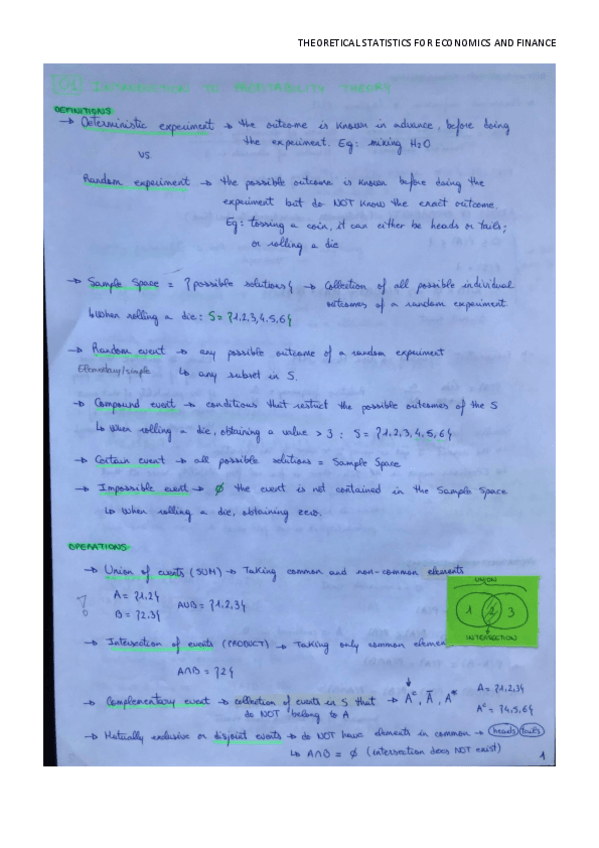 THEORETICAL STATISTICS FOR ECONOMICS AND FINANCE
INTRODUCTION TO PROBABILITY THEORY
DEFINITIONS:
→ Deterministic experiment → the outcome is known in advance, before doing
the experiment. Eg: mixing H2O
VS
Random experiment → the possible outcome is known before doing the
experiment but do NOT know the exact outcome.
Eg: tossing a coin, it can either be heads or tails;
or rolling a die
→ Sample Space = {possible solutions} → Collection of all possible individual
outcomes of a random experiment
↳ When rolling a die: S = {1,2,3,4,5,6}
→ Random event → any possible outcome of a random experiment
Elementary/simple ↳ any subset in S.
→ Compound event → conditions that restrict the possible outcomes of the S
↳ When rolling a die, obtaining a value > 3 : S = {1,2,3,4,5,6}
→ Certain event → all possible solutions = Sample Space
→ Impossible event → ∅ the event is not contained in the Sample Space
↳ When rolling a die, obtaining zero.
OPERATIONS:
→ Union of events (SUM) → Taking common and non-common elements
UNION
A = {1,2}
B = {2,3}
A∪B = {1,2,3}
1 2 3
INTERSECTION
→ Intersection of events (PRODUCT) → Taking only common elemen
A∩B = {2}
→ Complementary event → collection of events in S that → Aᶜ, Ā, A* A = {1,2,3}
do NOT belong to A Aᶜ = {4,5,6}
→ Mutually exclusive or disjoint events → do NOT have elements in common → heads tails
↳ A∩B = ∅ (intersection does NOT exist)
1